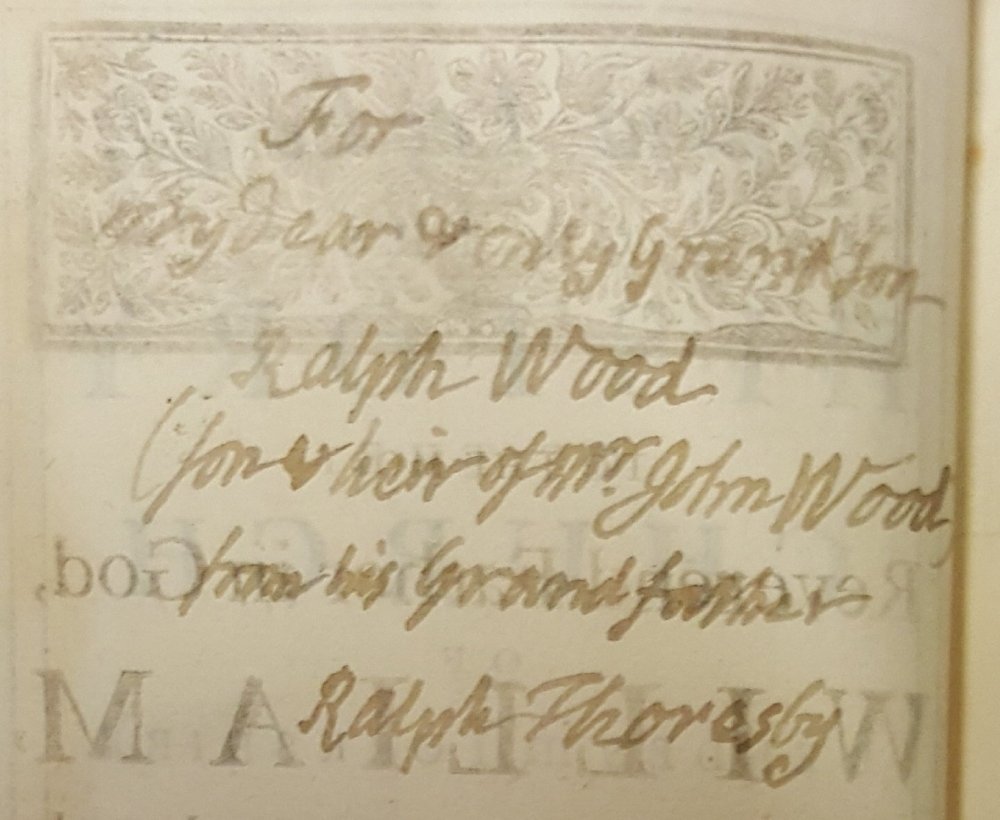 For
my Dear & only Grandson
Ralph Wood
(son & heir of Mr. John Wood)
from his Grandfather
Ralph Thoresby